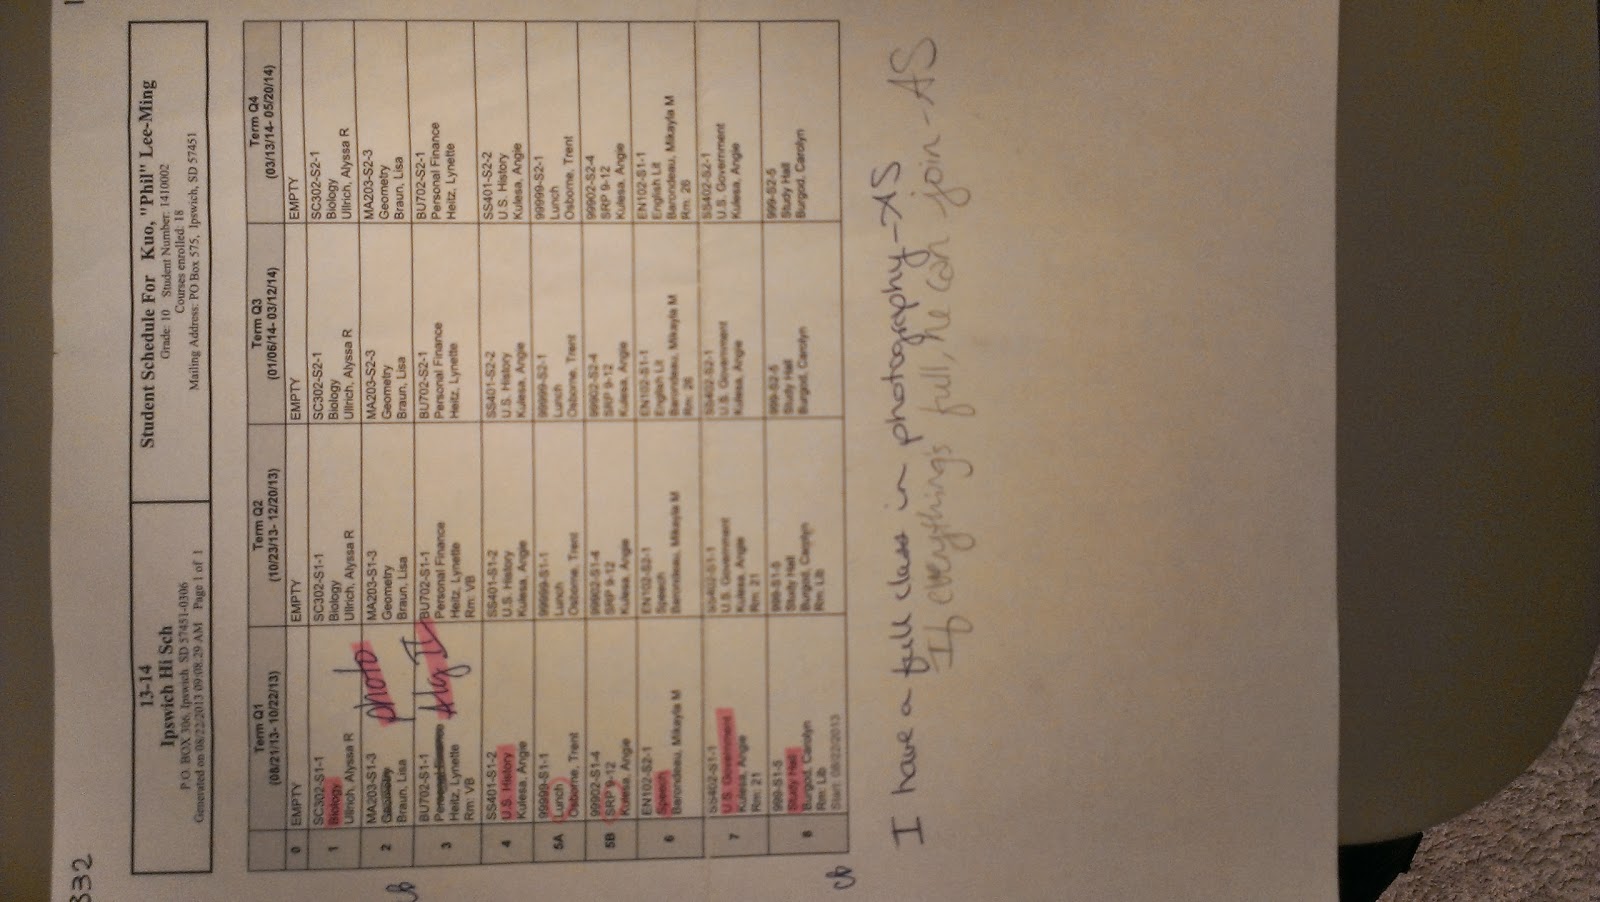 332
13-14
Ipswich Hi Sch
P.O. BOX 306, Ipswich SD 57451-0306
Generated on 08/22/2013 09:08:29 AM Page 1 of 1
Student Schedule For Kuo, "Phil" Lee-Ming
Grade: 10 Student Number: 1410002
Courses enrolled: 18
Mailing Address: PO Box 575, Ipswich, SD 57451
Term Q1 (08/21/13- 10/22/13)
Term Q2 (10/23/13- 12/20/13)
Term Q3 (01/06/14- 03/12/14)
Term Q4 (03/13/14- 05/20/14)
0 EMPTY EMPTY EMPTY EMPTY
1 SC302-S1-1 SC302-S1-1 SC302-S2-1 SC302-S2-1
Biology Biology Biology Biology
Ullrich, Alyssa R Ullrich, Alyssa R Ullrich, Alyssa R Ullrich, Alyssa R
2 MA203-S1-3 MA203-S1-3 MA203-S2-3 MA203-S2-3
Geometry photo Geometry Geometry Geometry
Braun, Lisa Braun, Lisa Braun, Lisa Braun, Lisa
3 BU702-S1-1 BU702-S1-1 BU702-S2-1 BU702-S2-1
Personal Finance Alg II Personal Finance Personal Finance Personal Finance
Heitz, Lynette Heitz, Lynette Heitz, Lynette Heitz, Lynette
Rm: VB Rm: VB
4 SS401-S1-2 SS401-S1-2 SS401-S2-2 SS401-S2-2
U.S. History U.S. History U.S. History U.S. History
Kulesa, Angie Kulesa, Angie Kulesa, Angie Kulesa, Angie
5A 99999-S1-1 99999-S1-1 99999-S2-1 99999-S2-1
Lunch Lunch Lunch Lunch
Osborne, Trent Osborne, Trent Osborne, Trent Osborne, Trent
5B 99902-S1-4 99902-S1-4 99902-S2-4 99902-S2-4
SRP 9-12 SRP 9-12 SRP 9-12 SRP 9-12
Kulesa, Angie Kulesa, Angie Kulesa, Angie Kulesa, Angie
6 EN102-S2-1 EN102-S2-1 EN102-S1-1 EN102-S1-1
Speech Speech English Lit English Lit
Barondeau, Mikayla M Barondeau, Mikayla M Barondeau, Mikayla M Barondeau, Mikayla M
Rm: 26 Rm: 26
7 SS402-S1-1 SS402-S1-1 SS402-S2-1 SS402-S2-1
U.S. Government U.S. Government U.S. Government U.S. Government
Kulesa, Angie Kulesa, Angie Kulesa, Angie Kulesa, Angie
Rm: 21 Rm: 21
8 999-S1-5 999-S1-5 999-S2-5 999-S2-5
Study Hall Study Hall Study Hall Study Hall
Burgod, Carolyn Burgod, Carolyn Burgod, Carolyn Burgod, Carolyn
Rm: Lib Rm: Lib
Start: 08/22/2013
I have a full class in photography-AS
If everything's full, he can join-AS